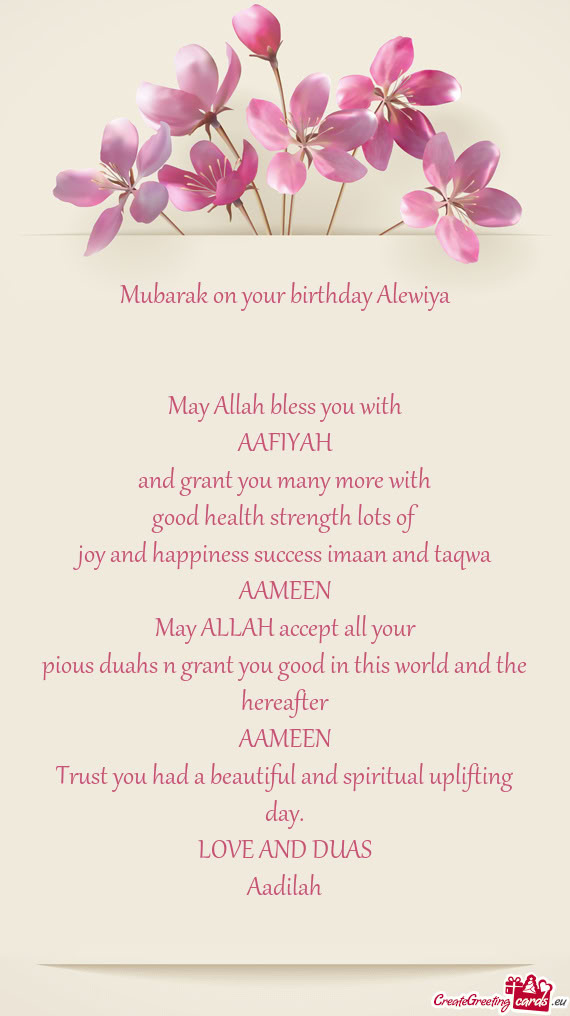 Mubarak on your birthday Alewiya
May Allah bless you with
AAFIYAH
and grant you many more with
good health strength lots of
joy and happiness success imaan and taqwa
AAMEEN
May ALLAH accept all your
pious duahs n grant you good in this world and the
hereafter
AAMEEN
Trust you had a beautiful and spiritual uplifting
day.
LOVE AND DUAS
Aadilah
CreateGreeting cards .eu